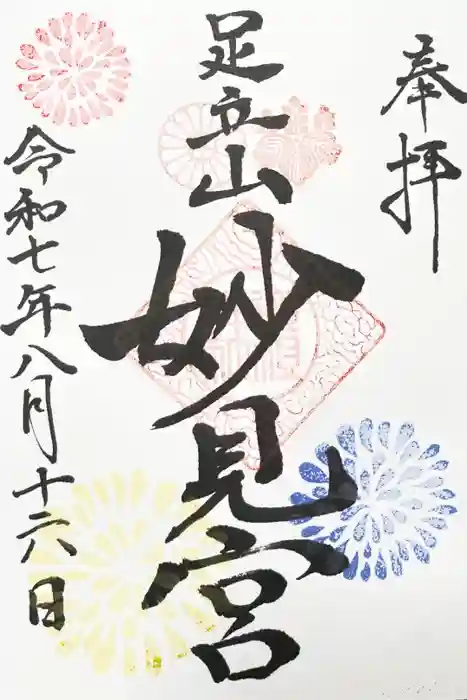 奉拝
足立山妙見宮
令和七年八月十六日